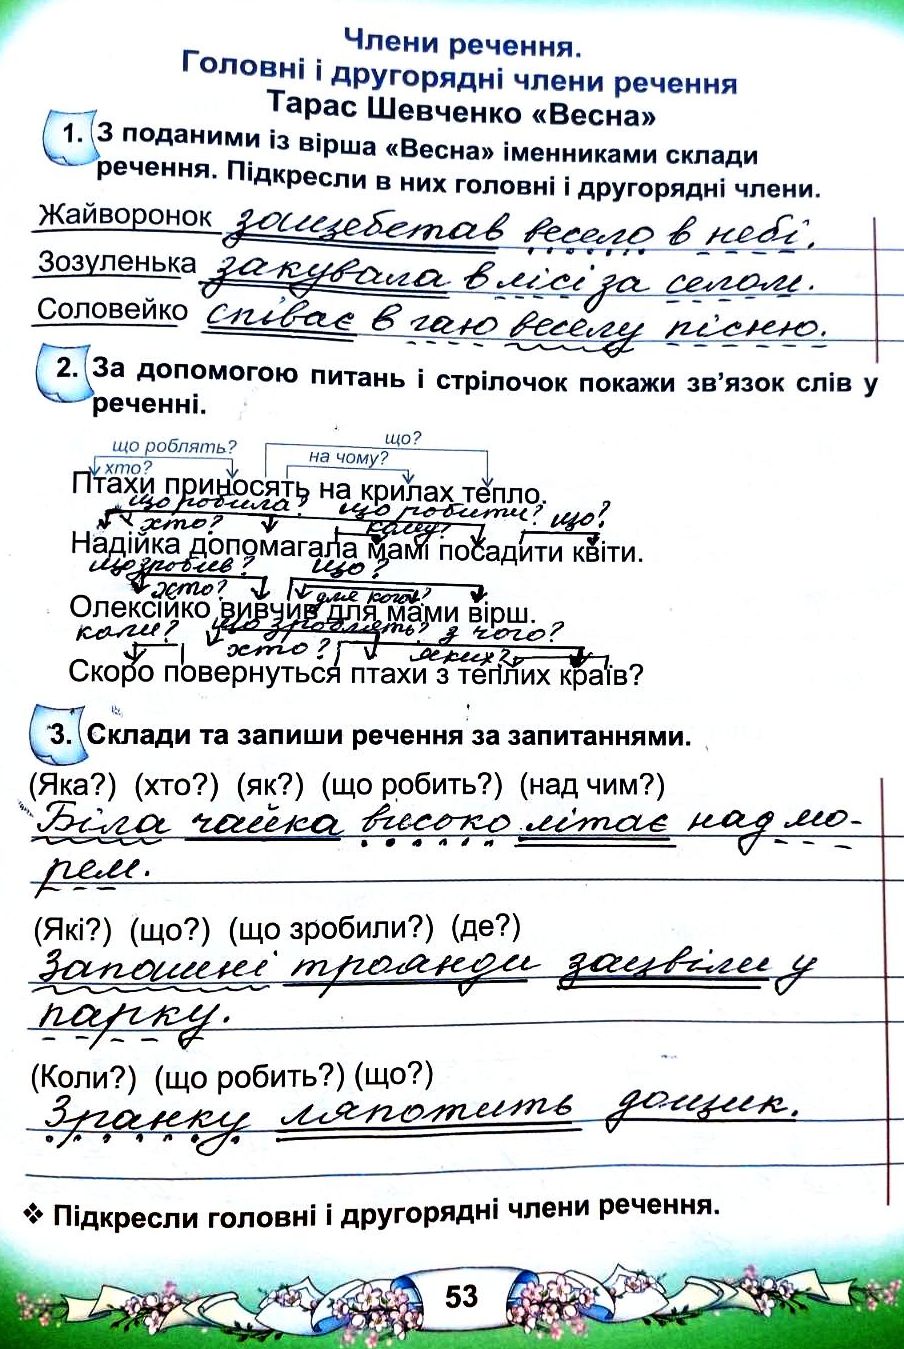 Члени речення.
Головні і другорядні члени речення
Тарас Шевченко «Весна»
1. З поданими із вірша «Весна» іменниками склади
речення. Підкресли в них головні і другорядні члени.
Жайворонок защебетав весело в небі.
Зозуленька закувала в лісі за селом.
Соловейко співає в гаю веселу пісню.
2. За допомогою питань і стрілочок покажи зв’язок слів у
реченні.
що роблять? що?
хто? на чому?
Птахи приносять на крилах тепло.
що робила? що робити?
хто? кому? що?
Надійка допомагала мамі посадити квіти.
що зробив? що?
хто? для кого?
Олексійко вивчив для мами вірш.
коли? що зроблять? з чого?
хто? яких?
Скоро повернуться птахи з теплих країв?
3. Склади та запиши речення за запитаннями.
(Яка?) (хто?) (як?) (що робить?) (над чим?)
Біла чайка високо літає над мо-
рем.
(Які?) (що?) (що зробили?) (де?)
Запашні троянди зацвіли у
парку.
(Коли?) (що робить?) (що?)
Зранку ляпотить дощик.
❖ Підкресли головні і другорядні члени речення.
53